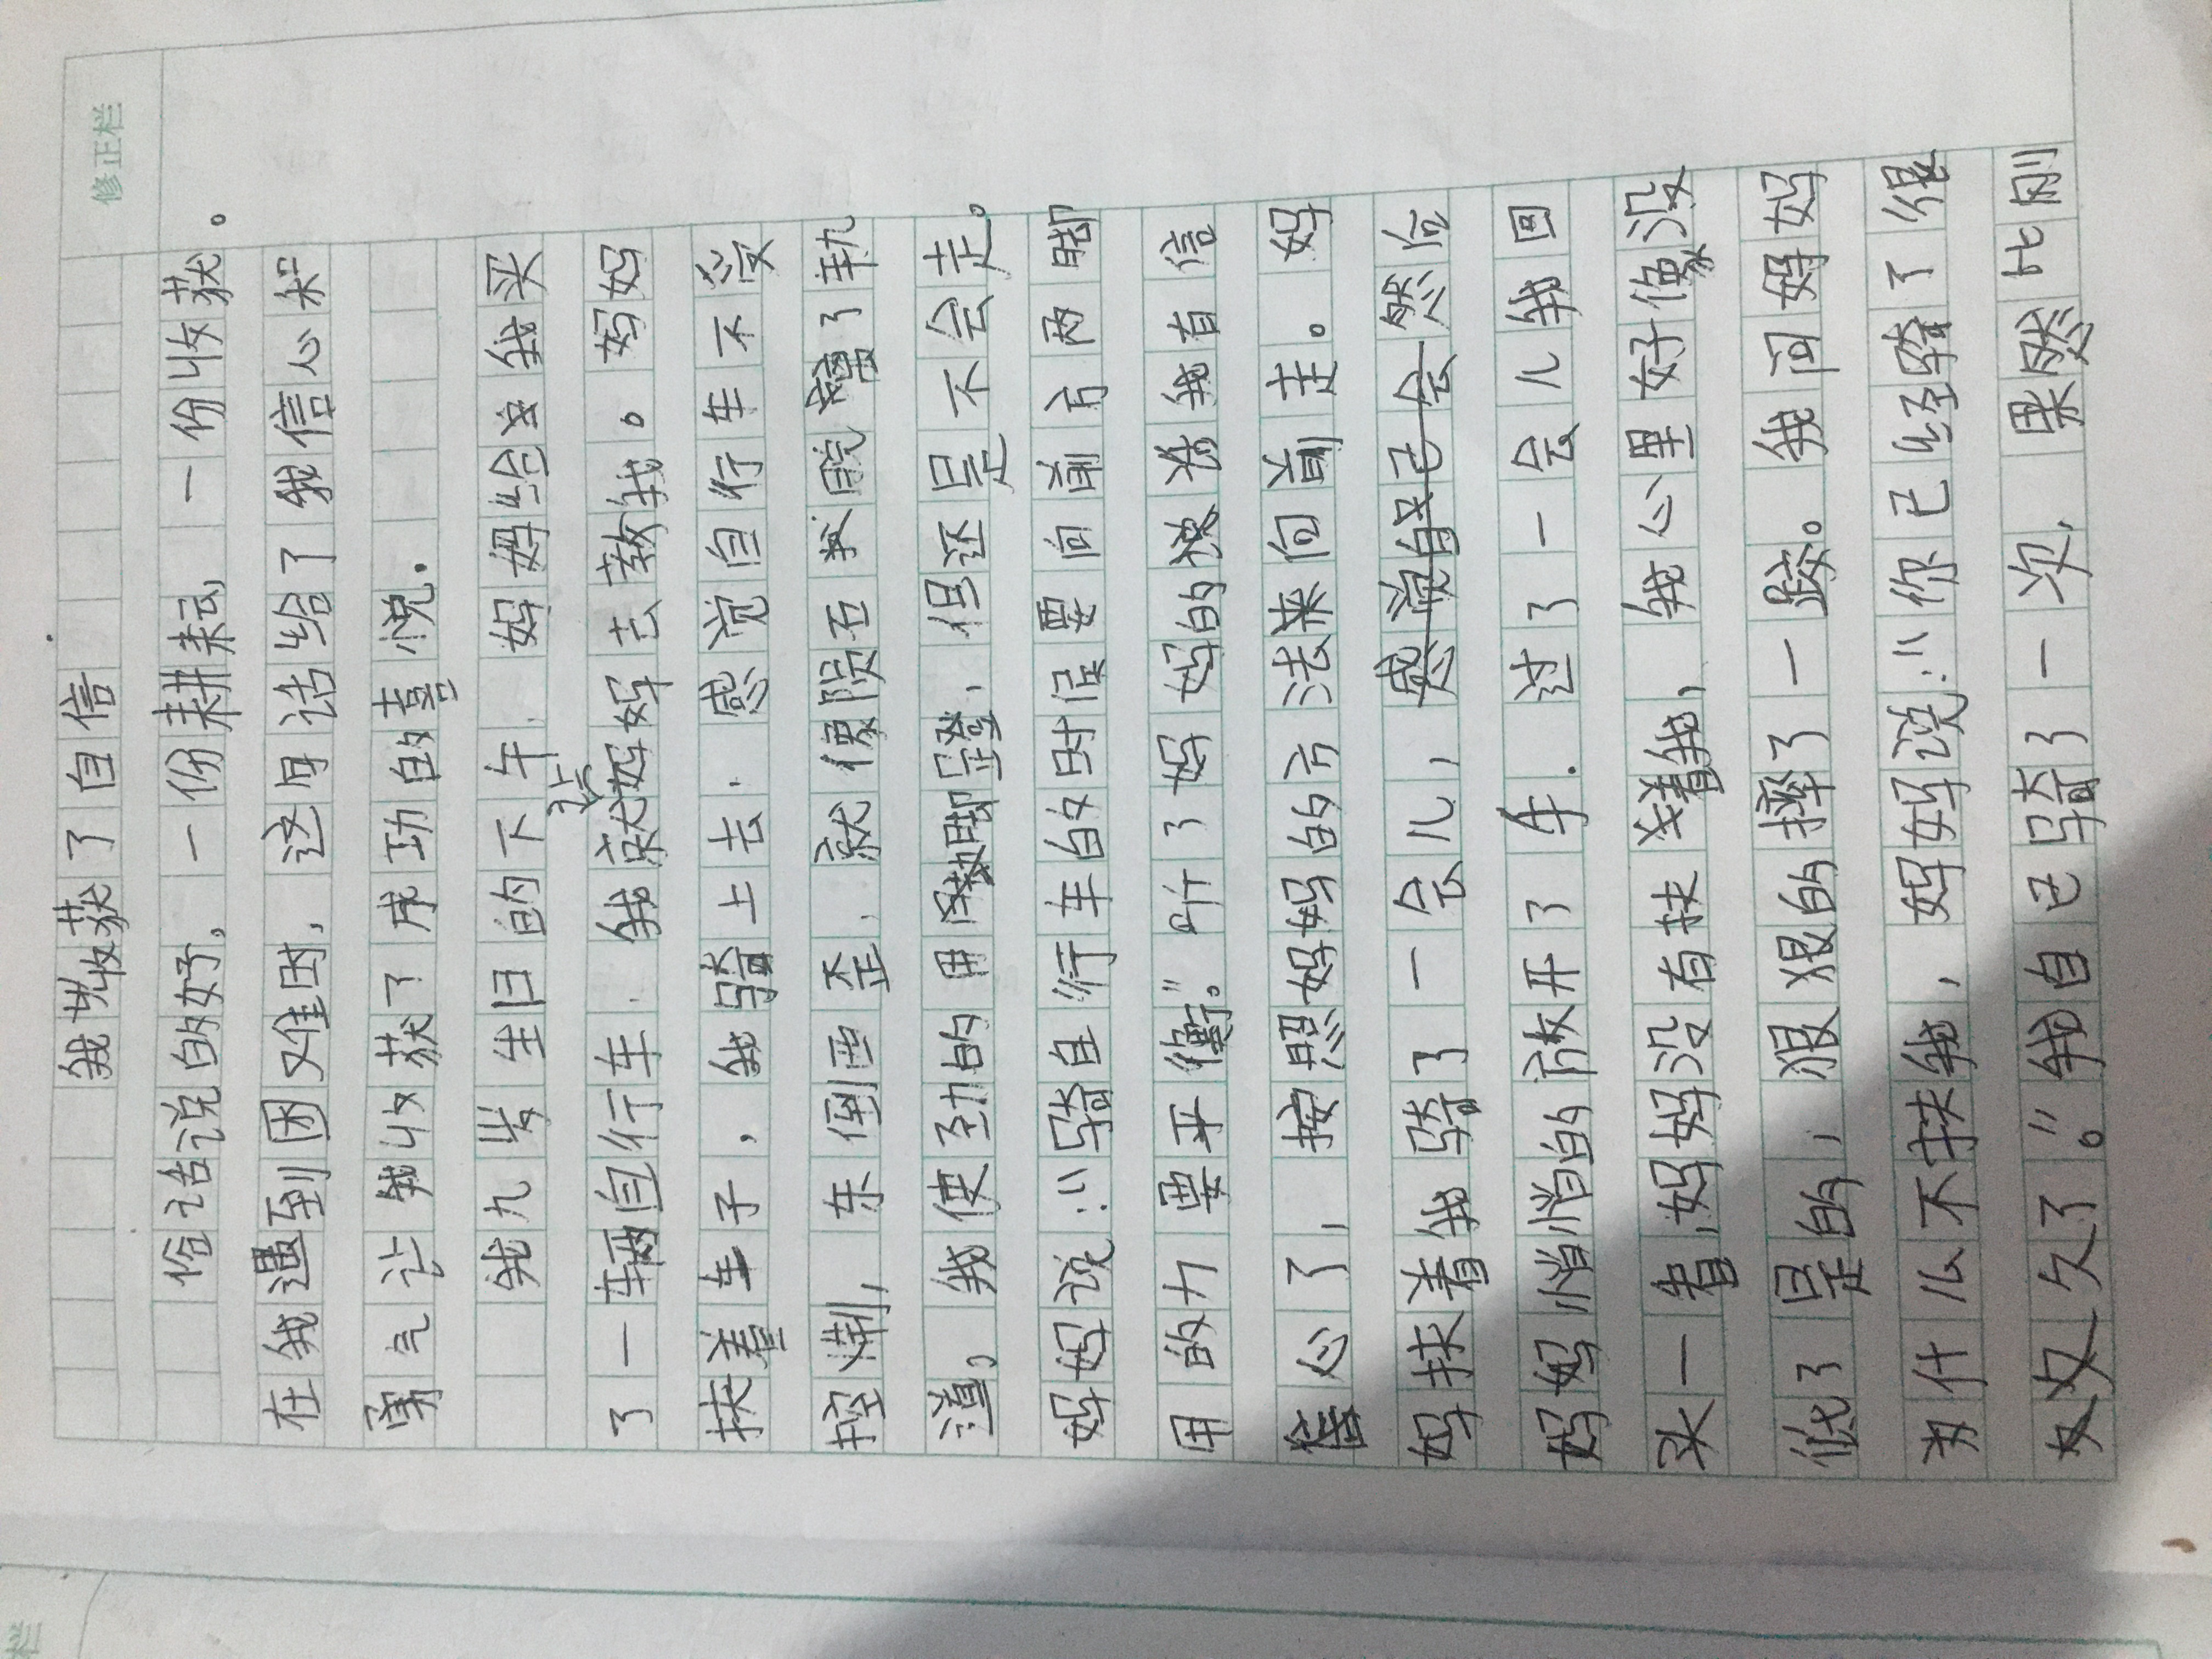 修正栏
我收获了自信
俗话说的好,一份耕耘一份收获。
在我遇到困难困,这句话给了我信心和
勇气让我收获了成功的喜悦.
我九岁生日的下午.妈妈给我买
了一辆自行车.我就让妈妈去教我。妈妈
扶着车子,我骑上去.感觉自行车不受
控制,东倒西歪.就像陨石脱离了轨
道。我使劲的用脚蹬.但还是不会走。
妈妈说:"骑自行车的时候要向前方两脚
用的力要平衡。"听了妈妈的话我有信
心了,按照妈妈的方法来向前走。妈
妈扶着我骑了一会儿,感觉自己会然后
妈妈悄悄的放开了车.过了一会儿我回
头一看,妈妈没有扶着我,我心里好像没
低了是的,狠狠的摔了一跤。我问妈妈
为什么不扶我,妈妈说:"你已经骑了很
久久了。"我自己骑了一次,果然比刚
栏